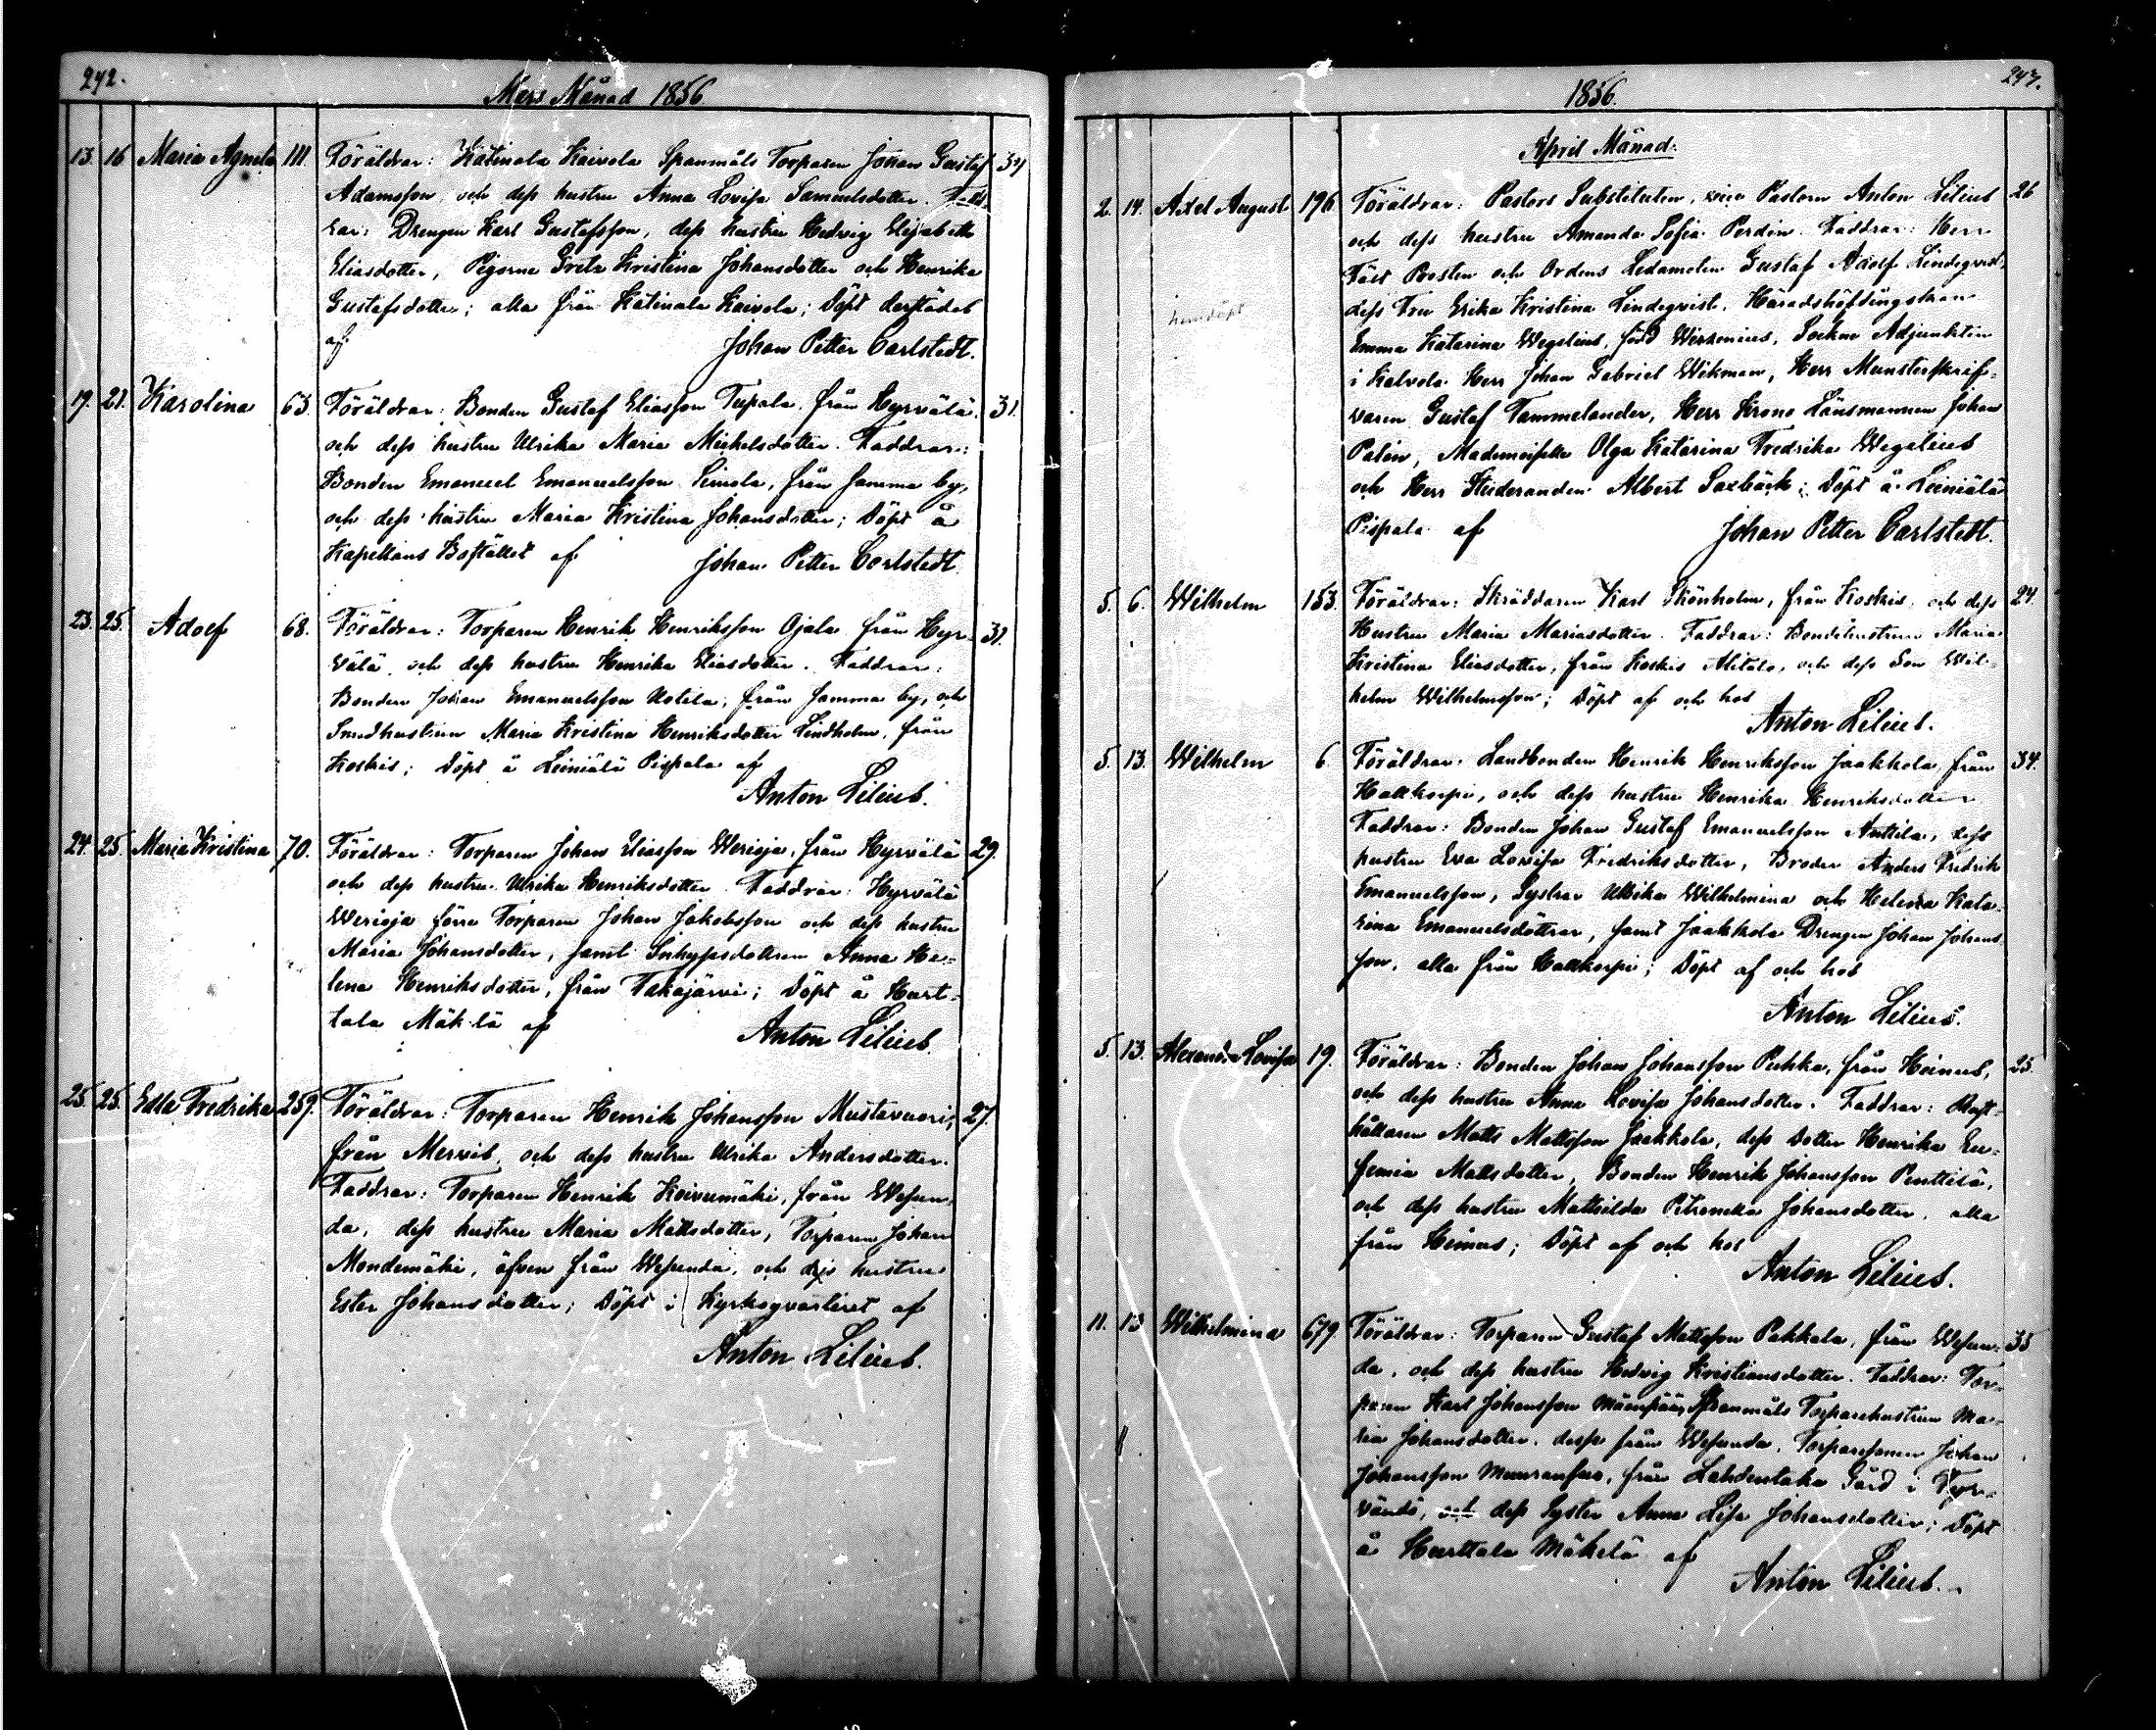 242.
Mars Månad 1856
13. 16 Maria Agneta 111. Föräldrar: Katinala Kaivola Spanmåls Torparen Johan Gustaf
Adamsson och dess hustru Anna Lovisa Samuelsdotter. Fadd-
rar: Drengen Karl Gustafsson, dess hustru Hedvig Elisabeth
Eliasdotter, Pigorna Greta Kristina Johansdotter och Henrika
Gustafsdotter; alla från Katinala Kaivola; Döpt derstädes
af Johan Petter Carlstedt.
19. 21. Karolina 63. Föräldrar: Bonden Gustaf Eliasson Tupala från Hyrvälä, 31.
och dess hustru Ulrika Maria Michelsdotter. Faddrar:
Bonden Emanuel Emanuelsson Simola, från samma by,
och dess hustru Maria Kristina Johansdotter; Döpt å
Kapellans Bostället af Johan Petter Carlstedt.
23. 25. Adolf 68. Föräldrar: Torparen Henrik Henriksson Ojala från Hyr-
välä, och dess hustru Henrika Eliasdotter. Faddrar:
Bonden Johan Emanuelsson Uotila, från samma by, och
Smedhustrun Maria Kristina Henriksdotter Lindholm, från
Koskis; Döpt å Leiniälä Pispala af
Anton Lilius.
24. 25. Maria Kristina 70. Föräldrar: Torparen Johan Eliasson Werioja, från Hyrvälä 29.
och dess hustru Ulrika Henriksdotter. Faddrar: Hyrvälä
Werioja förre Torparen Johan Jakobsson och dess hustru
Maria Johansdotter, samt Inhysesdottren Anna He-
lena Henriksdotter, från Takajärvi; Döpt å Hurt-
tala Mäkilä af Anton Lilius.
25. 25. Edla Fredrika 259. Föräldrar: Torparen Henrik Johansson Mustavuori, 27.
från Mervis, och dess hustru Ulrika Andersdotter.
Faddrar: Torparen Henrik Koivumäki, från Wesun-
da, dess hustru Maria Mattsdotter, Torparen Johan
Mondemäki, äfven från Wesunda, och dess hustru
Ester Johansdotter; Döpt i Kyrkogvarteret af
Anton Lilius.
243.
1856.
April Månad.
2. 14. Axel August 196 Föräldrar: Pastors Substituten, vice Pastorn Anton Lilius 26
och dess hustru Amanda Sofia Perdin. Faddrar: Herr
Fält Prosten och Ordens Ledamoten Gustaf Adolf Lindeqvist,
dess Fru Erika Kristina Lindeqvist, Häradshöfdingskan
hemdöpt
Emma Katarina Wegelius, född Wirzenius, Sockne Adjunkten
i Kalvola Herr Johan Gabriel Wikman, Herr Munsterskrif-
varen Gustaf Tammelander, Herr Krono Länsmannen Johan
Palin, Mademoiselle Olga Katarina Fredrika Wegelius
och Herr Studeranden Albert Saxbäck; Döpt å Leiniälä
Pispala af Johan Petter Carlstedt.
5. 6. Wilhelm 153. Föräldrar: Skräddaren Karl Skönholm, från Koskis, och dess 24.
Hustru Maria Mariasdotter. Faddrar: Bondehustrun Maria
Kristina Eliasdotter, från Koskis Alitalo, och dess Son Wil-
helm Wilhelmsson; Döpt af och hos
Anton Lilius.
5. 13. Wilhelm 6. Föräldrar: Landbonden Henrik Henriksson Jaakkola, från 34.
Hattkorpi, och dess hustru Henrika Henriksdotter
Faddrar: Bonden Johan Gustaf Emanuelsson Anttila, dess
hustru Eva Lovisa Fredriksdotter, Broder Anders Fredrik
Emanuelsson, Systrar Ulrika Wilhelmina och Helena Kata-
rina Emanuelsdöttrar, samt Jaakkola Drengen Johan Johans-
son, alla från Hattkorpi; Döpt af och hos
Anton Lilius.
5. 13. Alexandra Lovisa 19. Föräldrar: Bonden Johan Johansson Puhka, från Heinus, 25.
och dess hustru Anna Lovisa Johansdotter. Faddrar: Rust-
hållaren Matts Mattsson Jaakkola, dess Dotter Henrika Eu-
femia Mattsdotter, Bonden Henrik Johansson Penttilä,
och dess hustru Mathilda Petronella Johansdotter, alla
från Heinus; Döpt af och hos
Anton Lilius.
11. 13 Wilhelmina 679 Föräldrar: Torparen Gustaf Mattsson Pakkala, från Wesun- 35
da, och dess hustru Hedvig Kristiansdotter. Faddrar: Tor-
paren Karl Johansson Mäenpää, Spanmåls Torparehustrun Ma-
ria Johansdotter, desse från Wesunda, Torparesonen Johan
Johansson, från Lahdentaka Gård i Tyr-
vändö, och dess Syster Anna Lisa Johansdotter; Döpt
å Hurttala Mäkelä af
Anton Lilius.